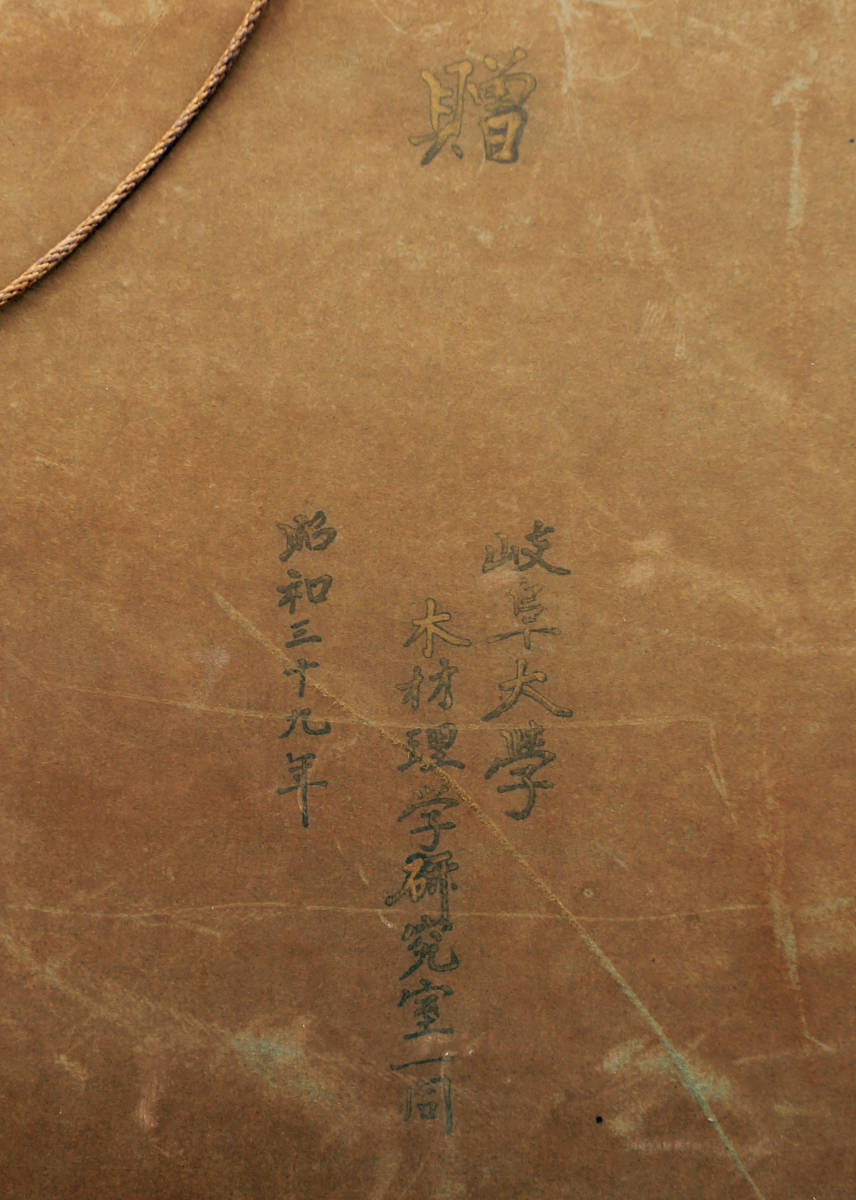 贈
岐阜大學
木材理学研究室一同
昭和三十九年